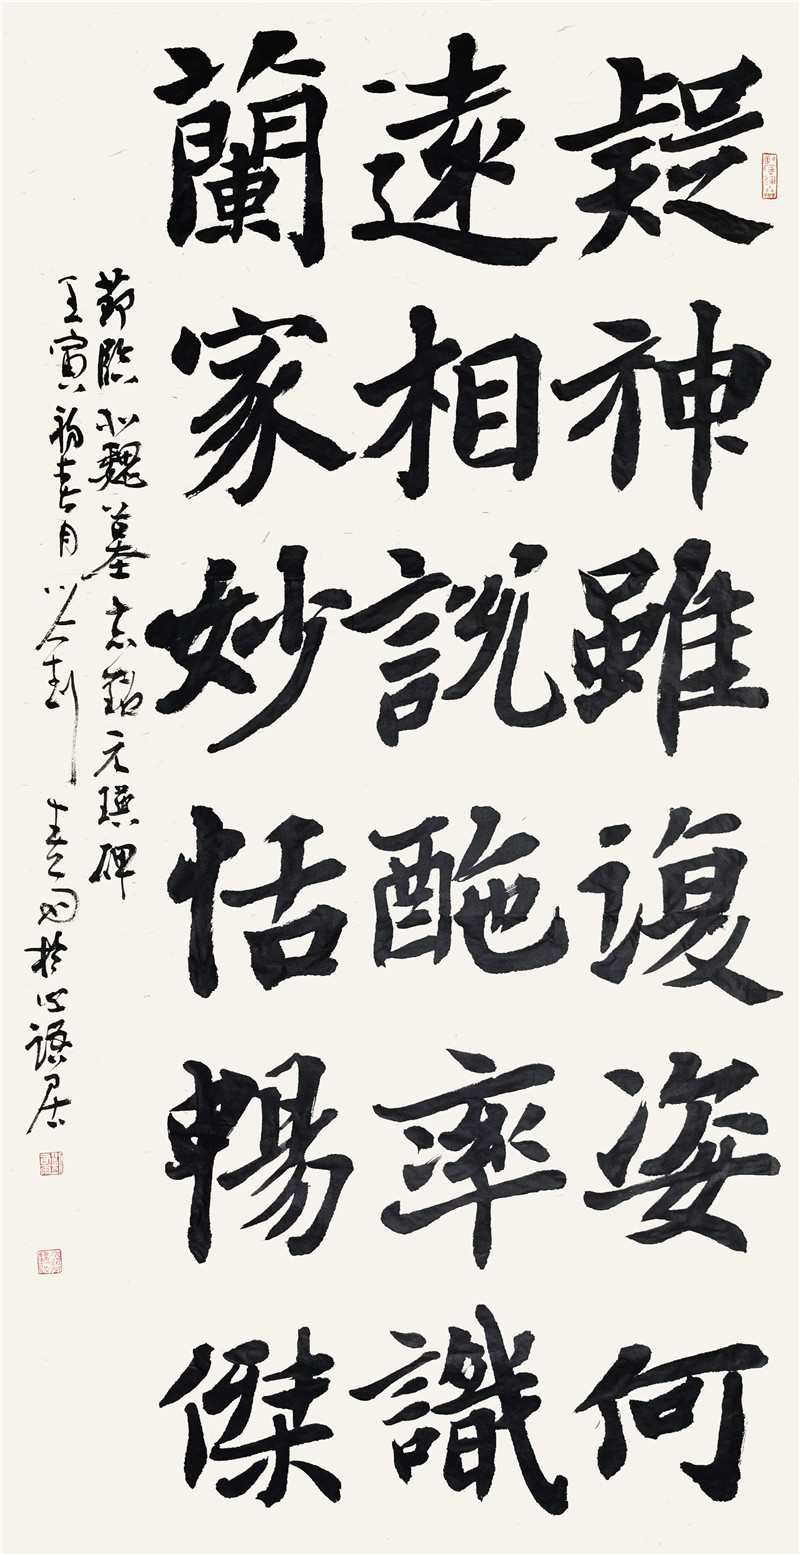 疑神雖復姿何
遠相說酏率識
蘭家妙恬暢傑
節臨北魏墓志銘元瑛碑
壬寅初春月 於心語居